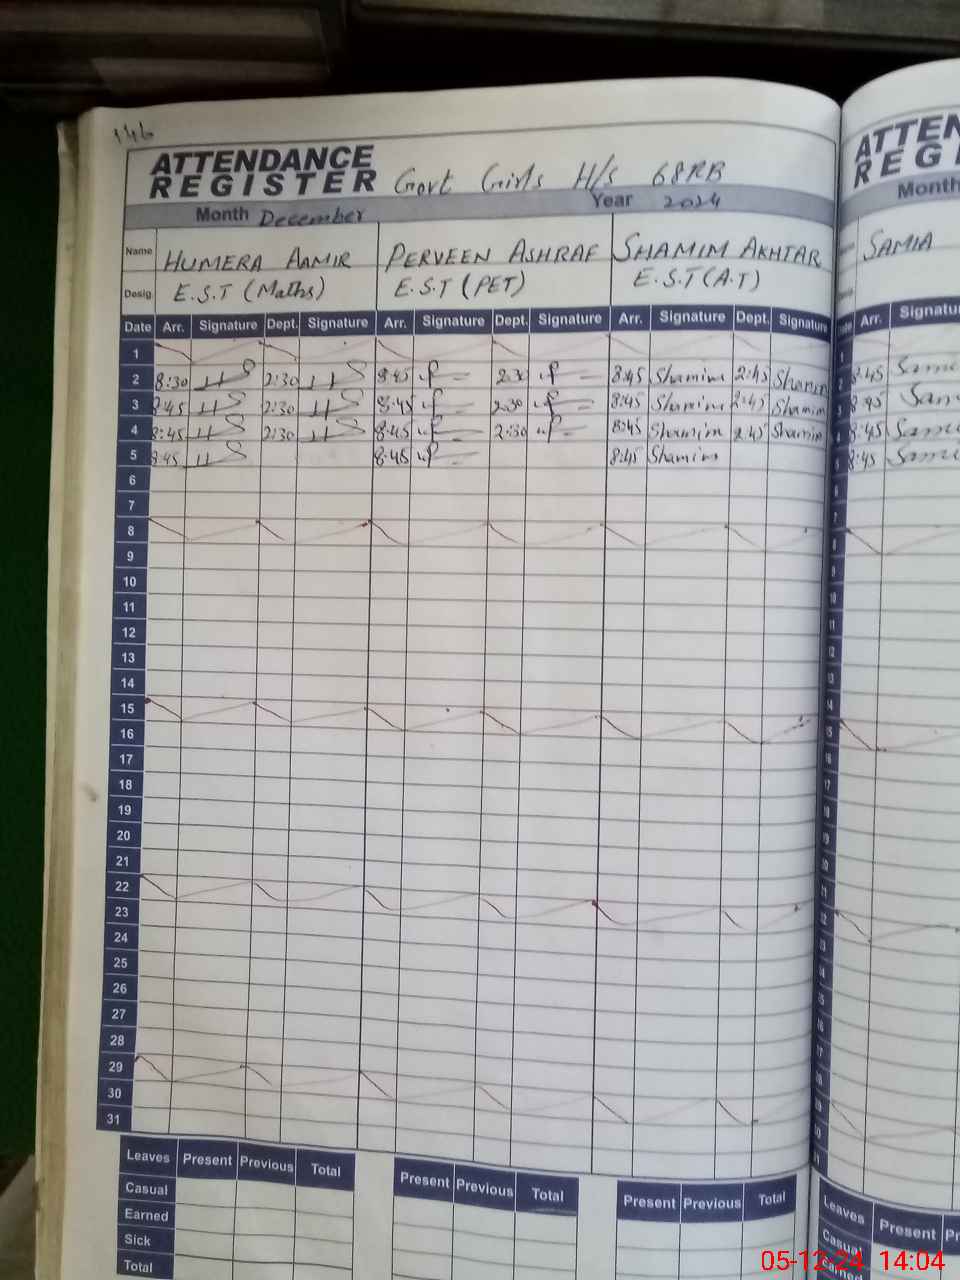 146
ATTENDANCE
REGISTER Govt Girls H/s 68RB
Month December Year 2024
Name HUMERA AAMIR PERVEEN ASHRAF SHAMIM AKHTAR
Desig. E.S.T (Maths) E.S.T (PET) E.S.T (A.T)
Date Arr. Signature Dept. Signature Arr. Signature Dept. Signature Arr. Signature Dept. Signature
1
2 8:30 2:30 8:45 2:30 8:45 Shamim 2:45 Shamim
3 8:45 2:30 8:45 2:30 8:45 Shamim 2:45 Shamim
4 8:45 2:30 8:45 2:30 8:45 Shamim 2:45 Shamim
5 8:45 8:45 8:45 Shamim
6
7
8
9
10
11
12
13
14
15
16
17
18
19
20
21
22
23
24
25
26
27
28
29
30
31
Leaves Present Previous Total Present Previous Total Present Previous Total
Casual
Earned
Sick
Total
ATTEN
REGI
Month
SAMIA
Arr. Signatu
8:45
8:45
8:45
8:45
Leaves Present Pr
Casual
Earned
05-12-24 14:04